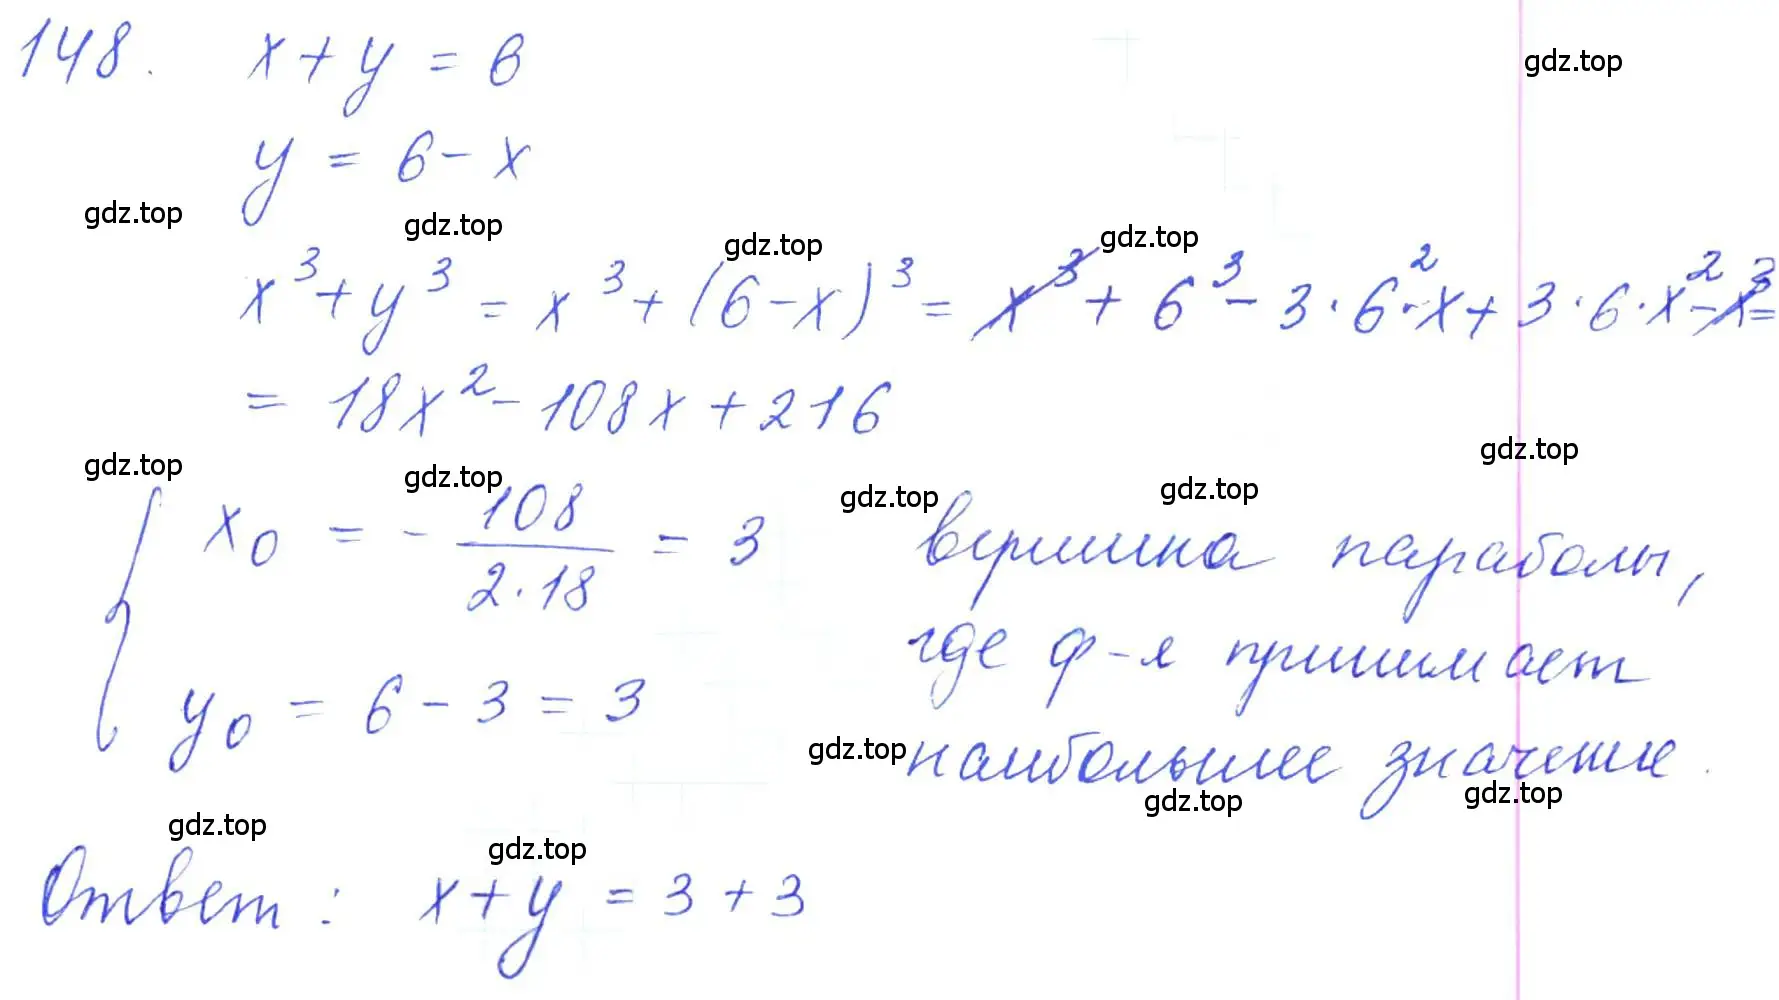 148. x + y = 6
gdz.top
y = 6 - x
gdz.top gdz.top gdz.top gdz.top
x³ + y³ = x³ + (6 - x)³ = x³ + 6³ - 3 · 6² · x + 3 · 6 · x² - x³ =
= 18x² - 108x + 216
gdz.top gdz.top gdz.top gdz.top gdz.top
{ x₀ = - 108 / 2 · 18 = 3 вершина параболы,
где ф-я принимает
y₀ = 6 - 3 = 3
gdz.top наибольшее значение.
gdz.top gdz.top gdz.top gdz.top
Ответ: x + y = 3 + 3